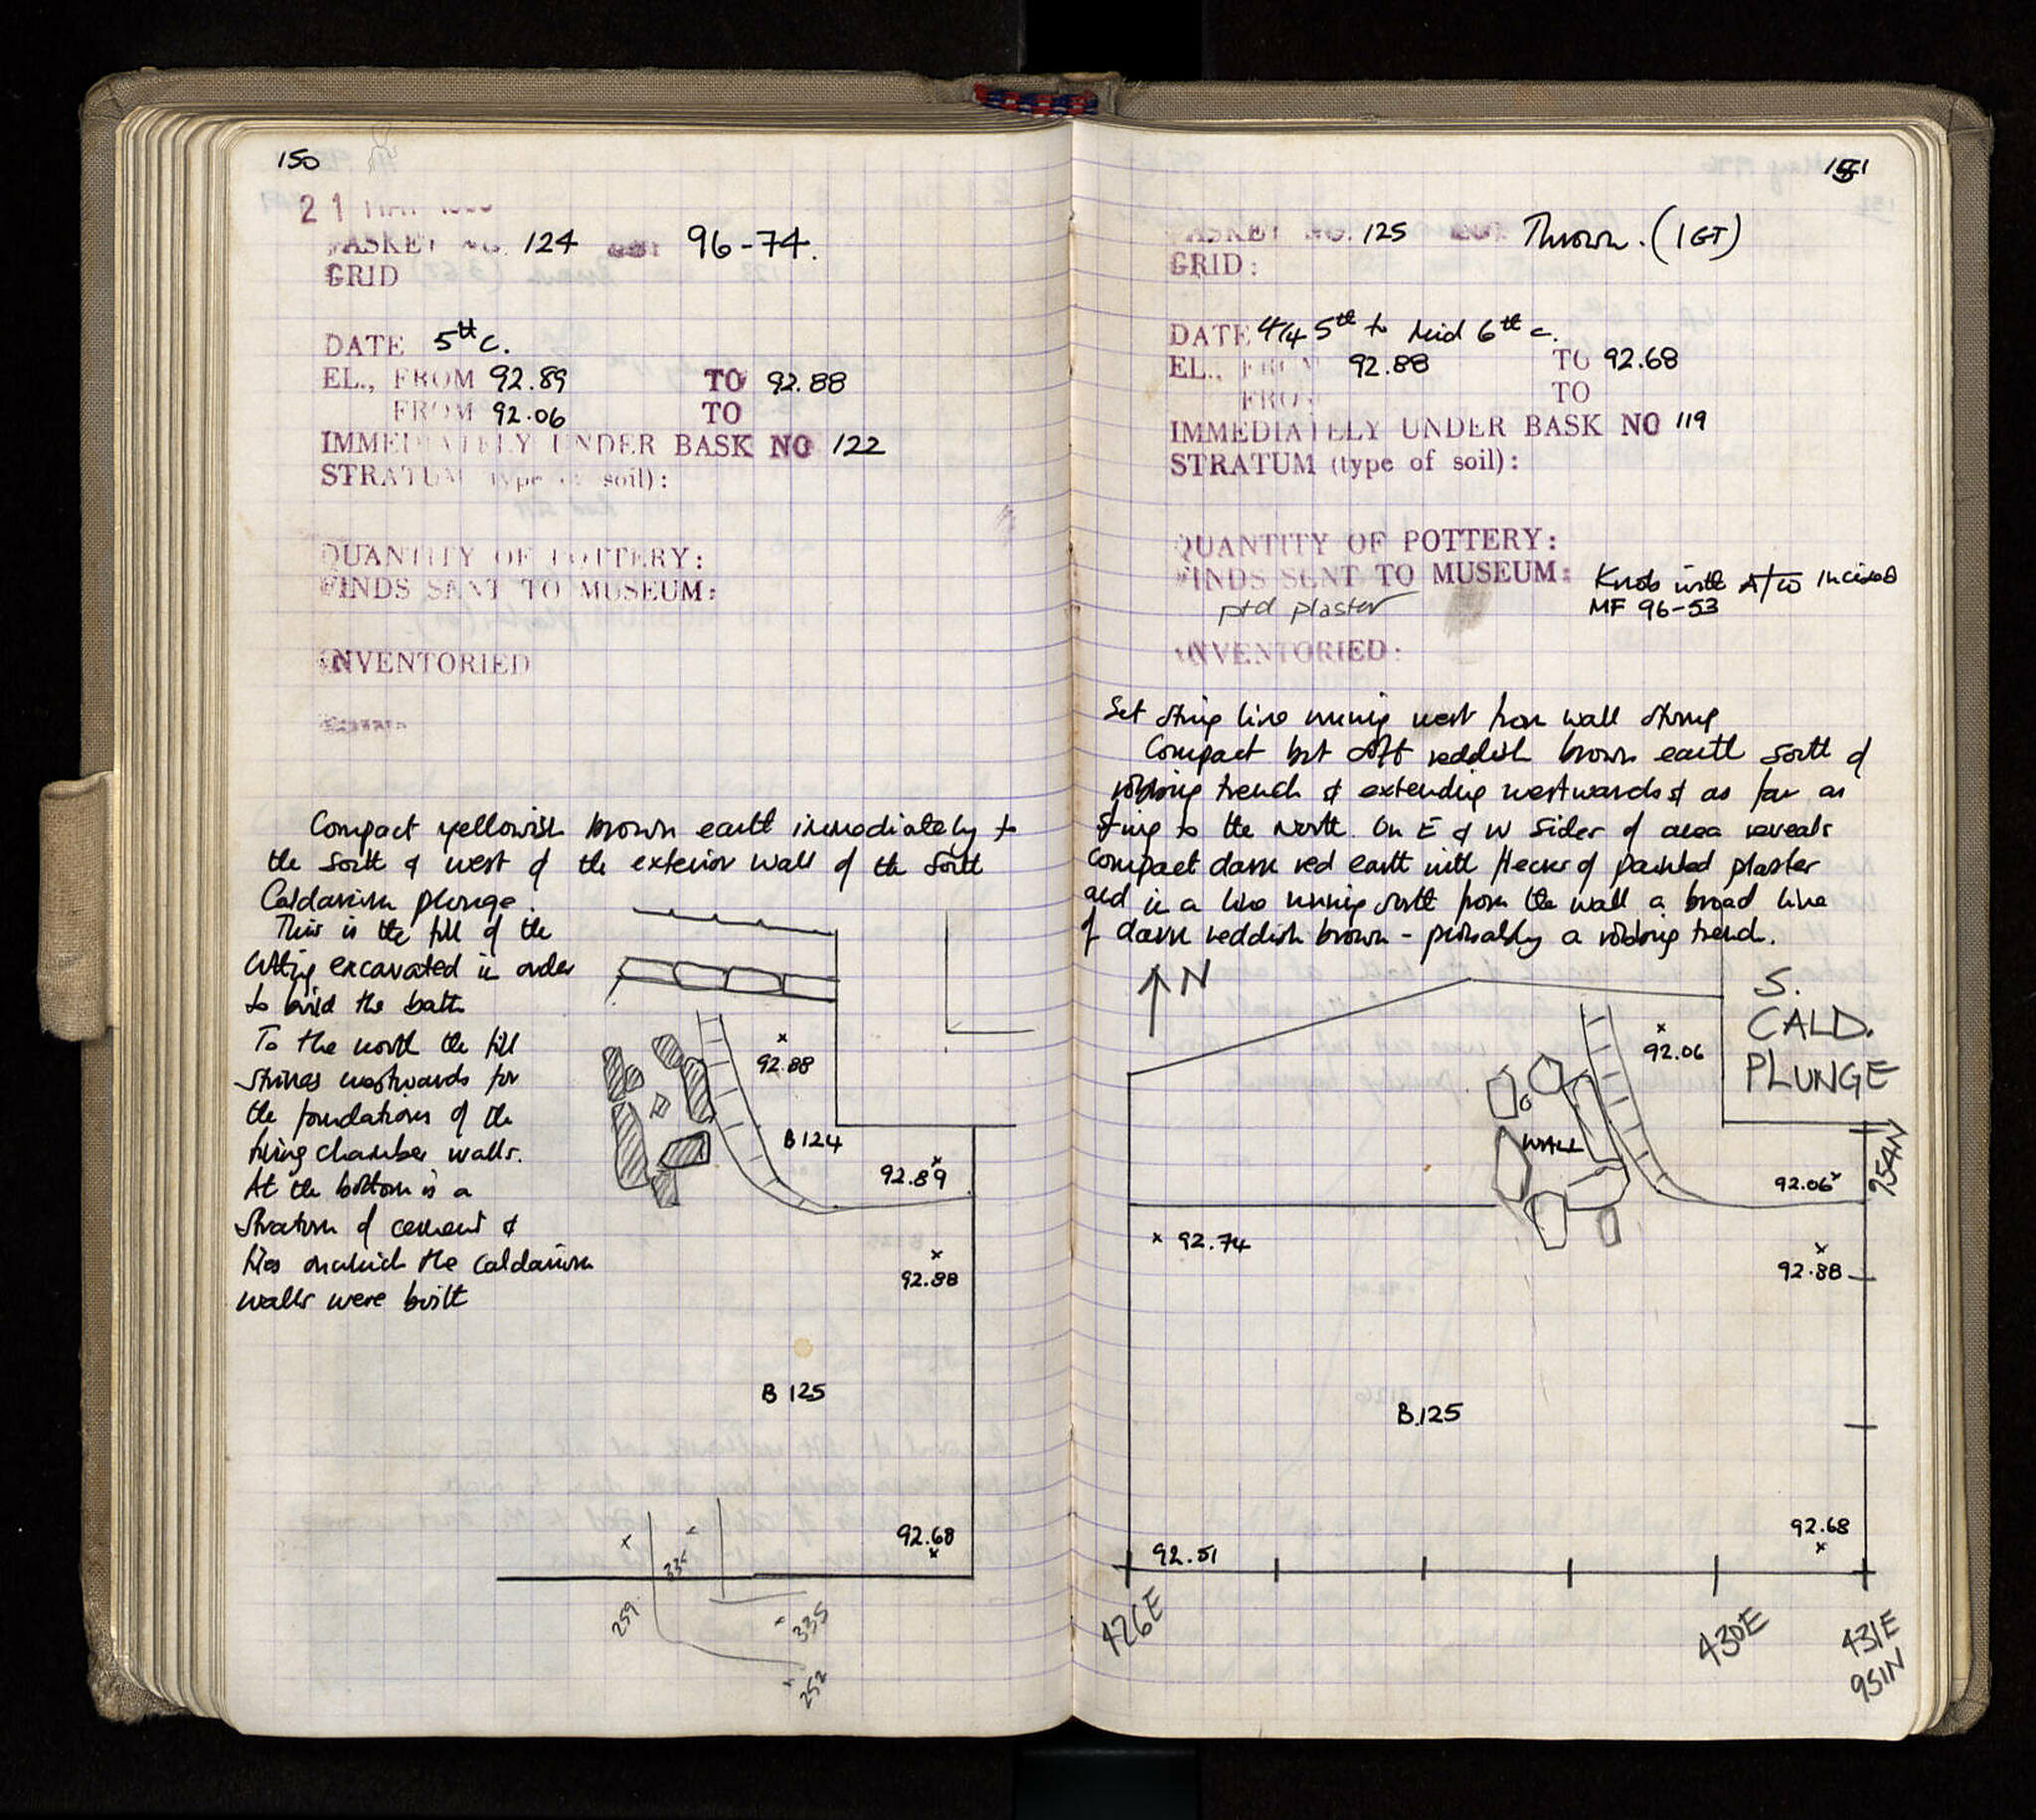 150
21 MAY
BASKET NO. 124 LOT 96-74.
GRID
DATE 5th c.
EL., FROM 92.89 TO 92.88
FROM 92.06 TO
IMMEDIATELY UNDER BASK NO 122
STRATUM (type of soil):
QUANTITY OF POTTERY:
FINDS SENT TO MUSEUM:
INVENTORIED
Compact yellowish brown earth immediately to
the south & west of the exterior wall of the south
Caldarium plunge.
This is the fill of the
cutting excavated in order
to build the bath
To the north the fill
strikes westwards for
the foundations of the
firing chamber walls.
At the bottom is a
stratum of cement &
tiles on which the Caldarium
walls were built
92.88
B 124
92.89
92.88
B 125
92.68
335
259
335
252
151
BASKET NO. 125 LOT Thrown. (1 GT)
GRID:
DATE 4/4 5th to Mid 6th c.
EL., FROM 92.88 TO 92.68
FROM TO
IMMEDIATELY UNDER BASK NO 119
STRATUM (type of soil):
QUANTITY OF POTTERY:
FINDS SENT TO MUSEUM: Knob with A/ω incised
ptd plaster MF 96-53
INVENTORIED:
Set string line running west from wall stump
Compact but soft reddish brown earth south of
robbing trench & extending westwards & as far as
string to the North. On E & W sides of area reveals
compact dark red earth with flecks of painted plaster
and in a line running south from the wall a broad line
of dark reddish brown - probably a robbing trench.
N
S.
CALD.
PLUNGE
92.06
WALL
92.06
954N
92.74
92.88
B.125
92.68
92.51
426E
430E
431E
951N